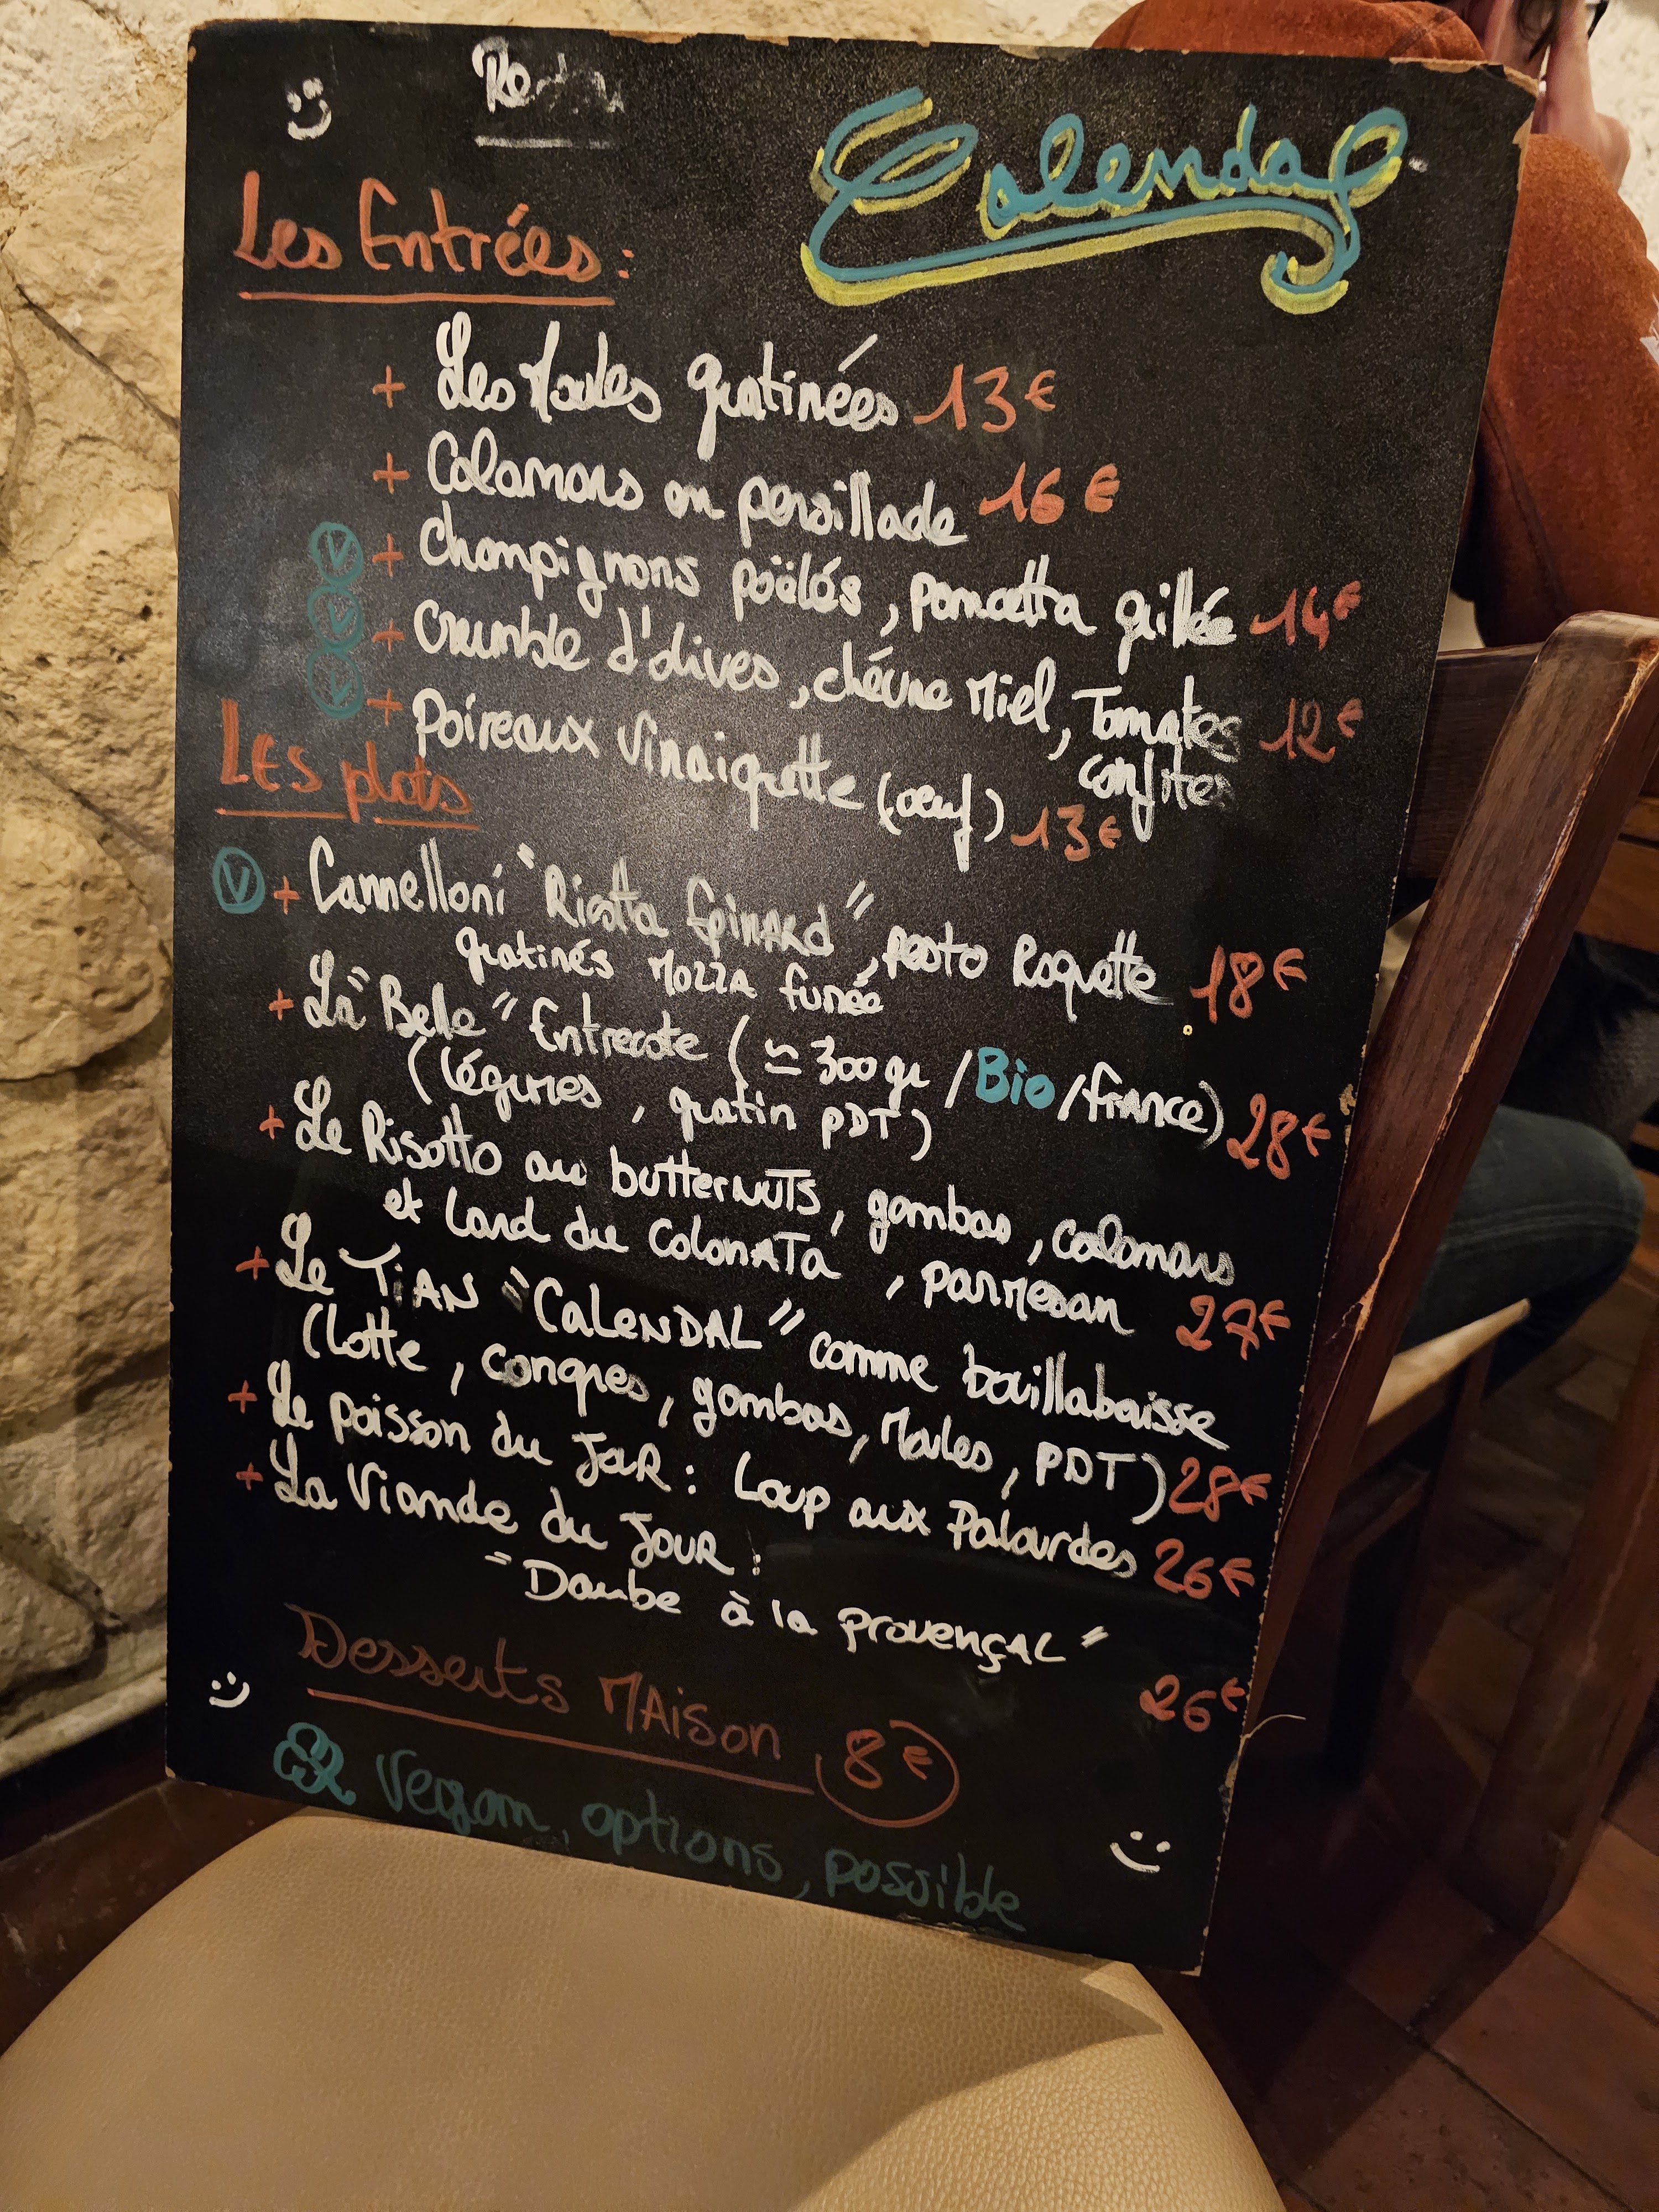 Calendal
Les Entrées :
+ Les Moules gratinées 13€
+ Calamars en persillade 16€
V + champignons poëlés, pancetta grillée 14€
V + crumble d'olives, chévre Miel, Tomates 12€
confites
V + poireaux vinaigrette (oeuf) 13€
LES plats
V + Cannelloni "Ricotta Epinard", pesto Roquette 18€
gratinés Mozza fumée
+ La "Belle" Entrecote (≃ 300gr / Bio / france) 28€
(légumes, gratin PDT)
+ Le Risotto au butternuts, gambas, calamars
et Lard du Colonata, parmesan 27€
+ Le TiAN "CaLeNDAL" comme bouillabaisse
(lotte, congres, gambas, Moules, PDT) 28€
+ Le poisson du JouR : Loup aux Palourdes 26€
+ La Viande du JouR :
"Daube à la provençAL" 26€
Desserts MAison 8€
Vegan, options, possible